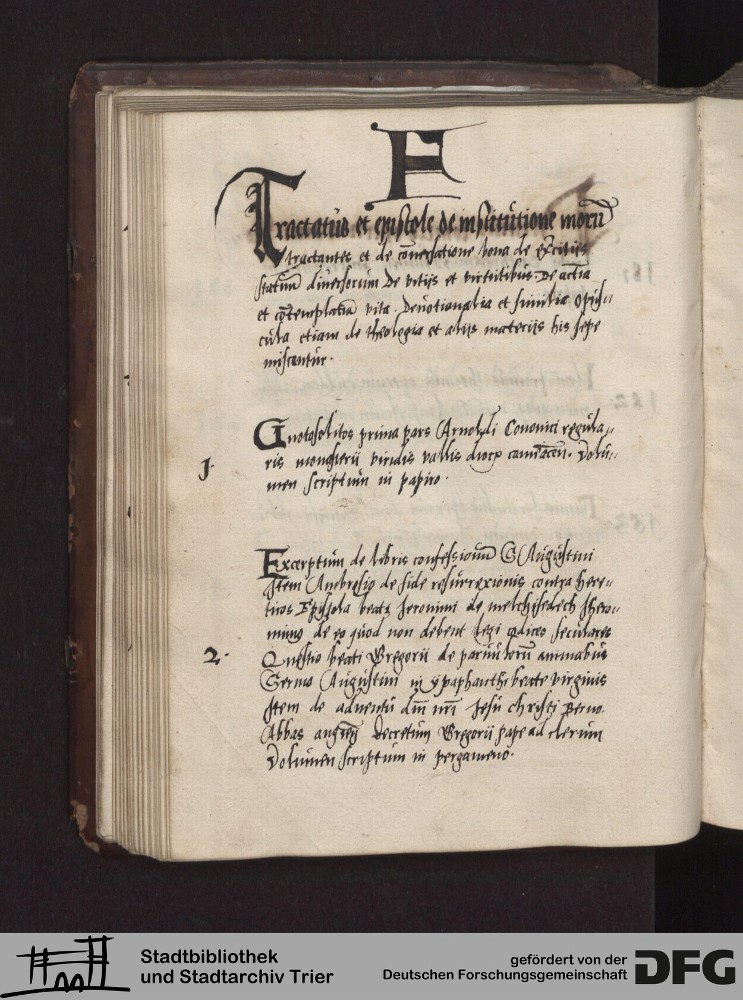 F
Tractatus et epistole de institutione morū
tractantes et de cōuersatione bona de
statuū diuersorum De vitijs et virtutibus. De actiā
et cōtemplatiā vita. Deuotionalia et similia opus„
cula etiam de theologia et alijs materijs his sepe
miscentur.
Gnotosolitos prima pars Arnoldi Cononici regula„
1. ris monasterij viridis vallis Volu„
men scriptum in papiro.
Excerptum de libris confessionū S Augustini
Item Ambrosio de fide resurrexionis contra here„
ticos Epistola beati Jeronimi de melchisedech Ihero„
nimus de eo quod non debent legi codices seculares
2. Questio beati Gregorii de paruulorū animabus
Sermo Augustini in ypaphanthi beate virginis
Item de aduentu dn̄i nr̄i Jesu christi Berno
Abbas Decretum Gregorii pape ad clerum
Volumen scriptum in pergameno.
Stadtbibliothek
und Stadtarchiv Trier
gefördert von der
Deutschen Forschungsgemeinschaft
DFG